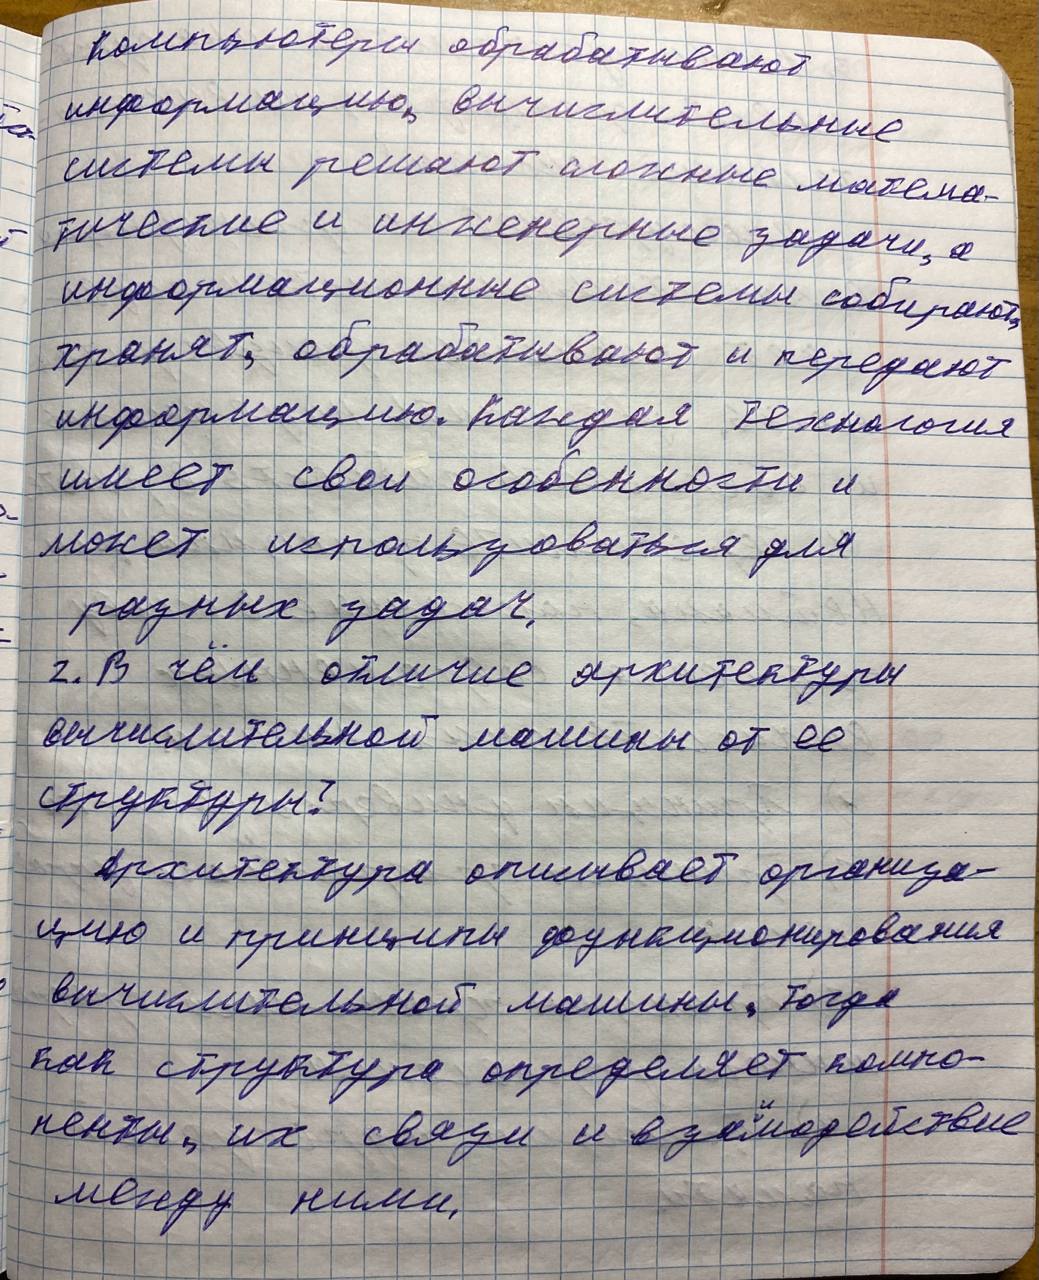 Компьютеры обрабатывают
информацию, вычислительные
системы решают сложные матема-
тические и инженерные задачи, а
информационные системы собирают,
хранят, обрабатывают и передают
информацию. Каждая технология
имеет свои особенности и
может использоваться для
разных задач.
2. В чём отличие архитектуры
вычислительной машины от ее
структуры?
Архитектура описывает организа-
цию и принципы функционирования
вычислительной машины, тогда
как структура определяет компо-
ненты, их связи и взаимодействие
между ними.